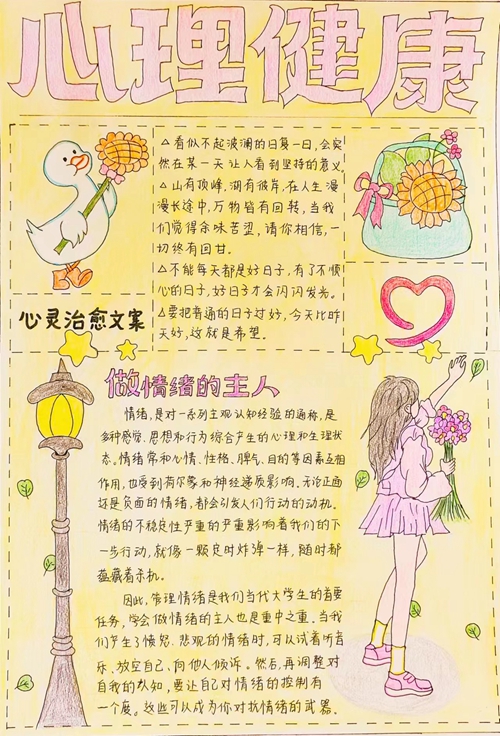 心理健康
△看似不起波澜的日复一日,会突
然在某一天让人看到坚持的意义
△山有顶峰,湖有彼岸,在人生漫
漫长途中,万物皆有回转,当我
们觉得余味苦涩,请你相信,一
切终有回甘。
△不能每天都是好日子,有了不顺
心的日子,好日子才会闪闪发光。
△要把普通的日子过好,今天比昨
天好,这就是希望。
心灵治愈文案
做情绪的主人
情绪,是对一系列主观认知经验的通称,是
多种感觉、思想和行为综合产生的心理和生理状
态。情绪常和心情、性格、脾气、目的等因素互相
作用,也受到荷尔蒙和神经递质影响。无论正面
还是负面的情绪,都会引发人们行动的动机。
情绪的不稳定性严重的严重影响着我们的下
一步行动,就像一颗定时炸弹一样,随时都
蕴藏着杀机。
因此,管理情绪是我们当代大学生的首要
任务,学会做情绪的主人也是重中之重。当我
们产生了愤怒、悲观的情绪时,可以试着听音
乐、放空自己、向他人倾诉。然后,再调整对
自我的认知,要让自己对情绪的控制有
一个度。这些可以成为你对抗情绪的武器.